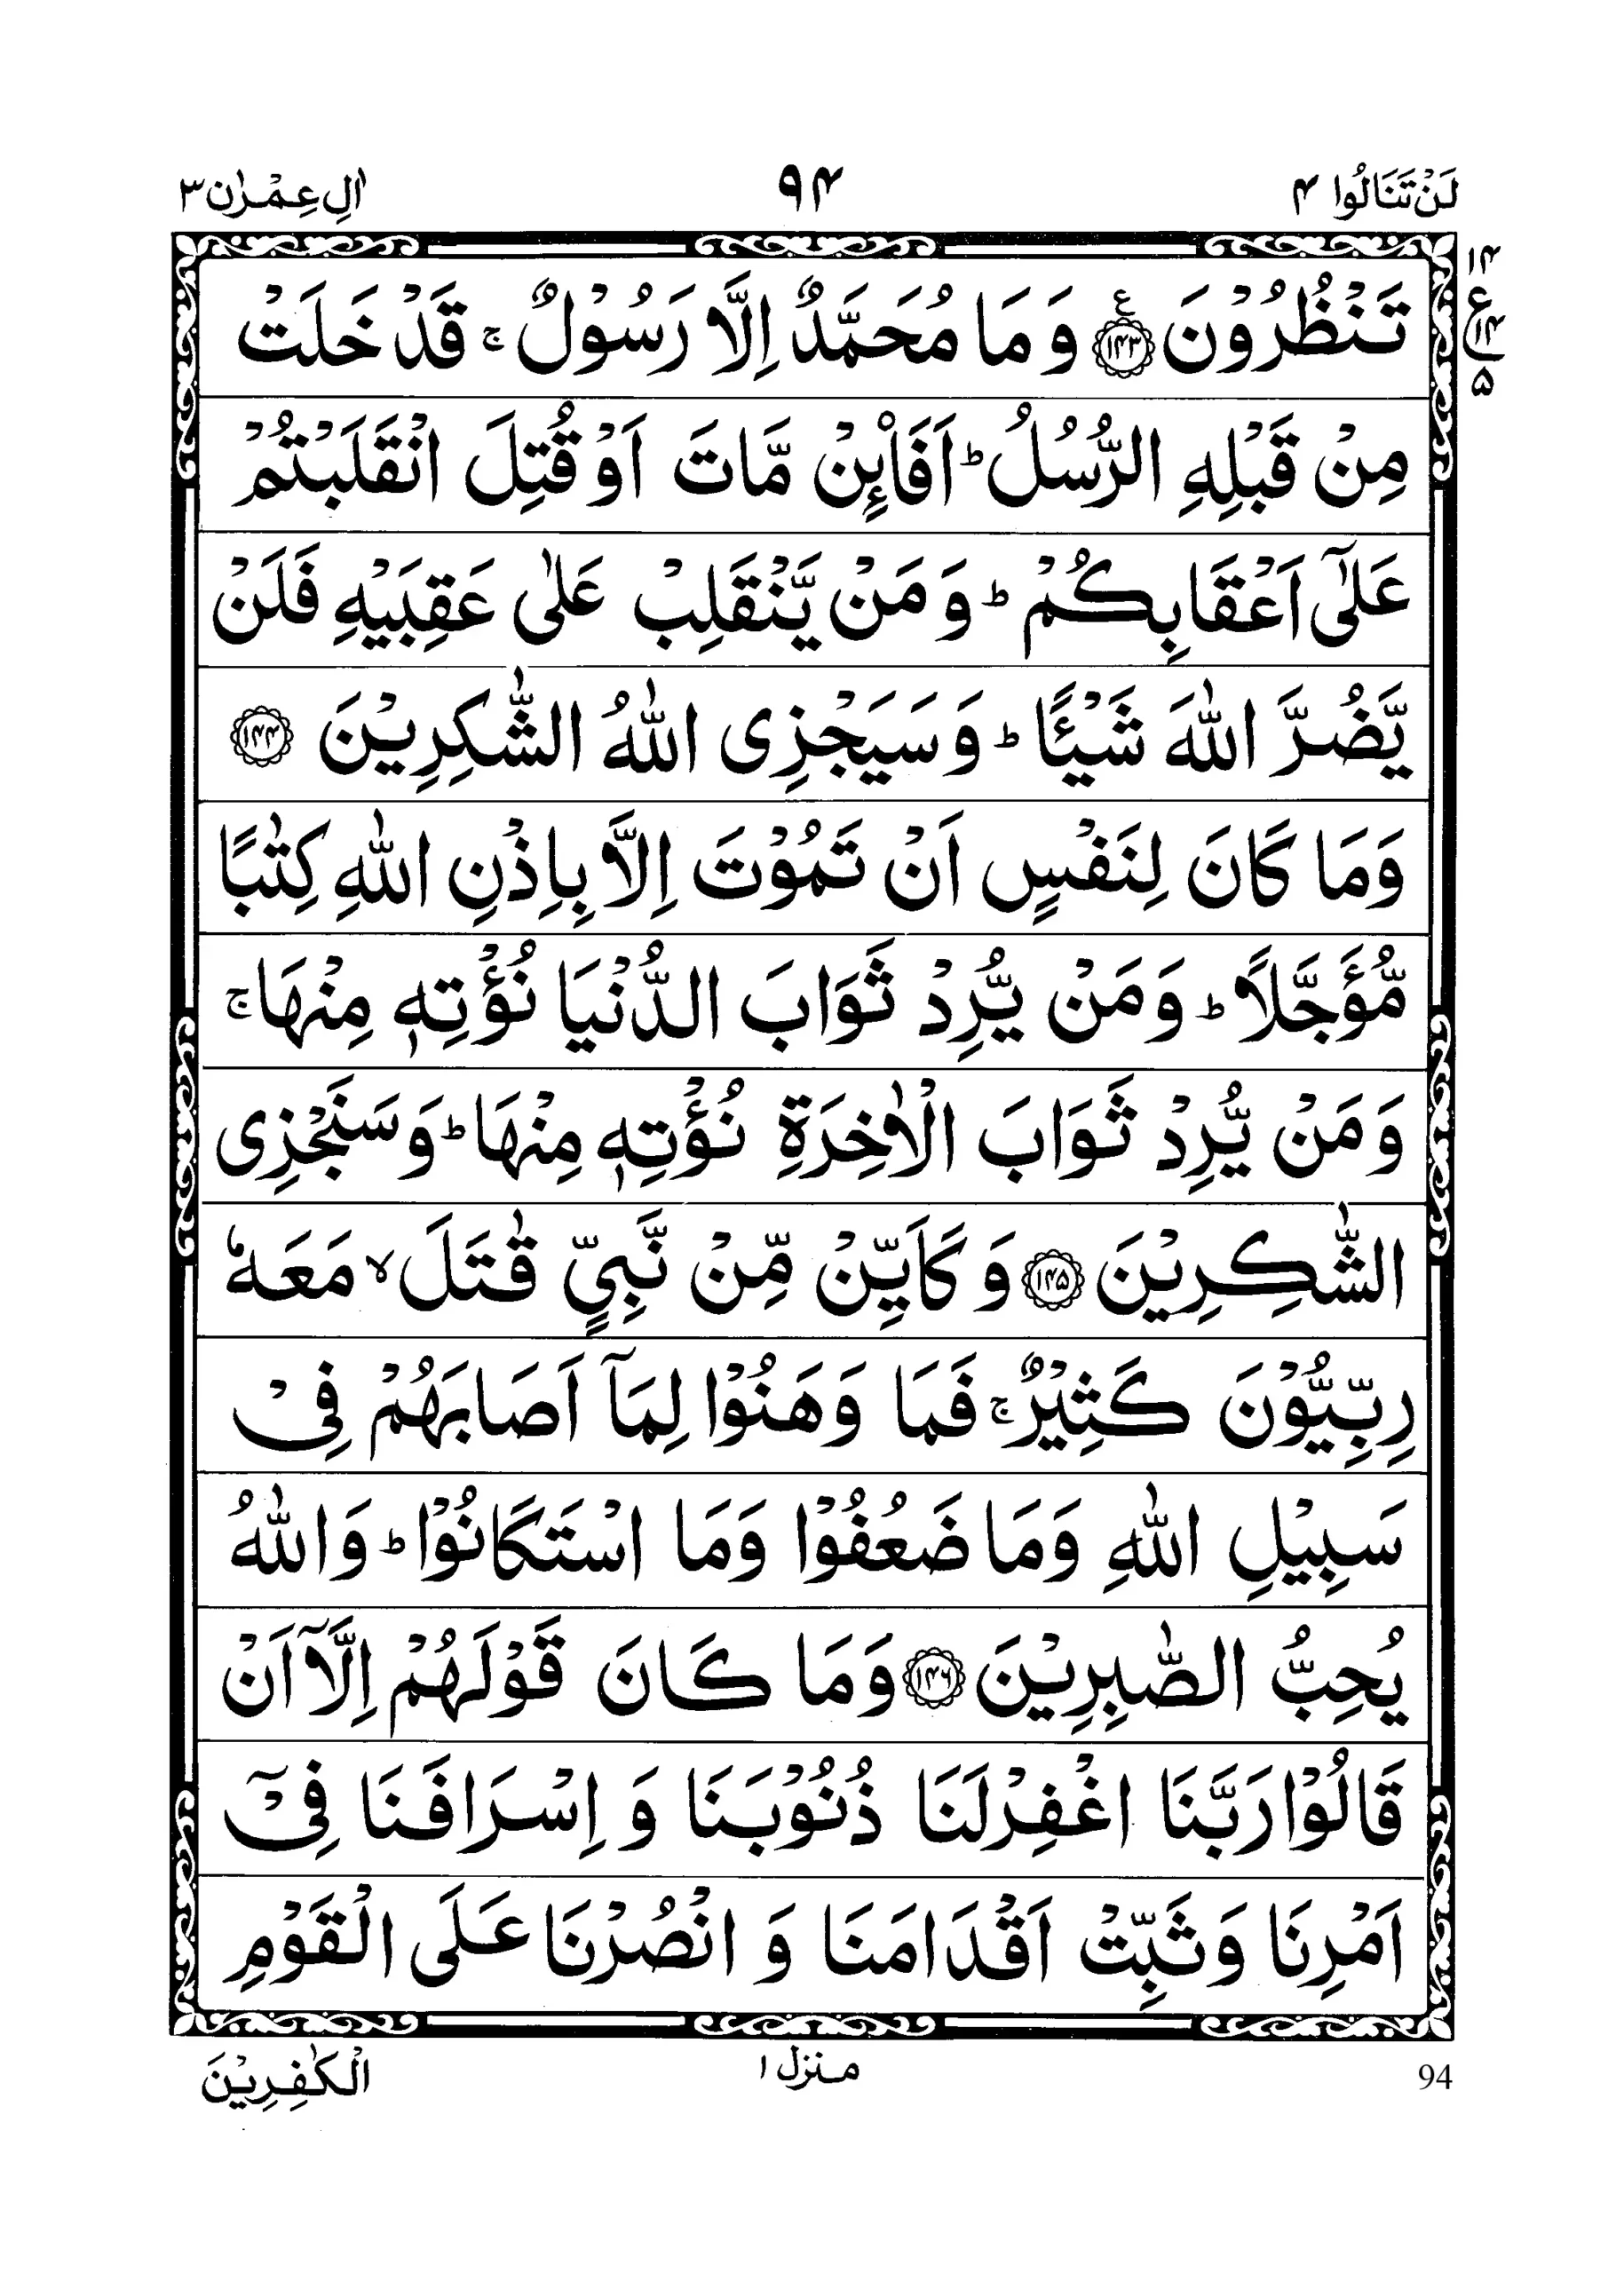 لَنْ تَنَالُوا ۴ ۹۴ اٰلِ عِمْرٰن ۳
۱۴
ع
۱۴
۵
تَنْظُرُوْنَ ﴿۱۴۳﴾ؑ وَمَا مُحَمَّدٌ اِلَّا رَسُوْلٌ ۚ قَدْ خَلَتْ
مِنْ قَبْلِهِ الرُّسُلُ ؕ اَفَا۠ئِنْ مَّاتَ اَوْ قُتِلَ انْقَلَبْتُمْ
عَلٰٓى اَعْقَابِكُمْ ؕ وَمَنْ يَّنْقَلِبْ عَلٰى عَقِبَيْهِ فَلَنْ
يَّضُرَّ اللّٰهَ شَيْـًٔا ؕ وَسَيَجْزِى اللّٰهُ الشّٰكِرِيْنَ ﴿۱۴۴﴾
وَمَا كَانَ لِنَفْسٍ اَنْ تَمُوْتَ اِلَّا بِاِذْنِ اللّٰهِ كِتٰبًا
مُّؤَجَّلًا ؕ وَمَنْ يُّرِدْ ثَوَابَ الدُّنْيَا نُؤْتِهٖ مِنْهَا ۚ
وَمَنْ يُّرِدْ ثَوَابَ الْاٰخِرَةِ نُؤْتِهٖ مِنْهَا ؕ وَسَنَجْزِى
الشّٰكِرِيْنَ ﴿۱۴۵﴾ وَكَاَيِّنْ مِّنْ نَّبِيٍّ قٰتَلَ ۙ مَعَهٗ
رِبِّيُّوْنَ كَثِيْرٌ ۚ فَمَا وَهَنُوْا لِمَآ اَصَابَهُمْ فِيْ
سَبِيْلِ اللّٰهِ وَمَا ضَعُفُوْا وَمَا اسْتَكَانُوْا ؕ وَاللّٰهُ
يُحِبُّ الصّٰبِرِيْنَ ﴿۱۴۶﴾ وَمَا كَانَ قَوْلَهُمْ اِلَّآ اَنْ
قَالُوْا رَبَّنَا اغْفِرْلَنَا ذُنُوْبَنَا وَاِسْرَافَنَا فِيْٓ
اَمْرِنَا وَثَبِّتْ اَقْدَامَنَا وَانْصُرْنَا عَلَى الْقَوْمِ
94 منزل ۱ الْكٰفِرِيْنَ